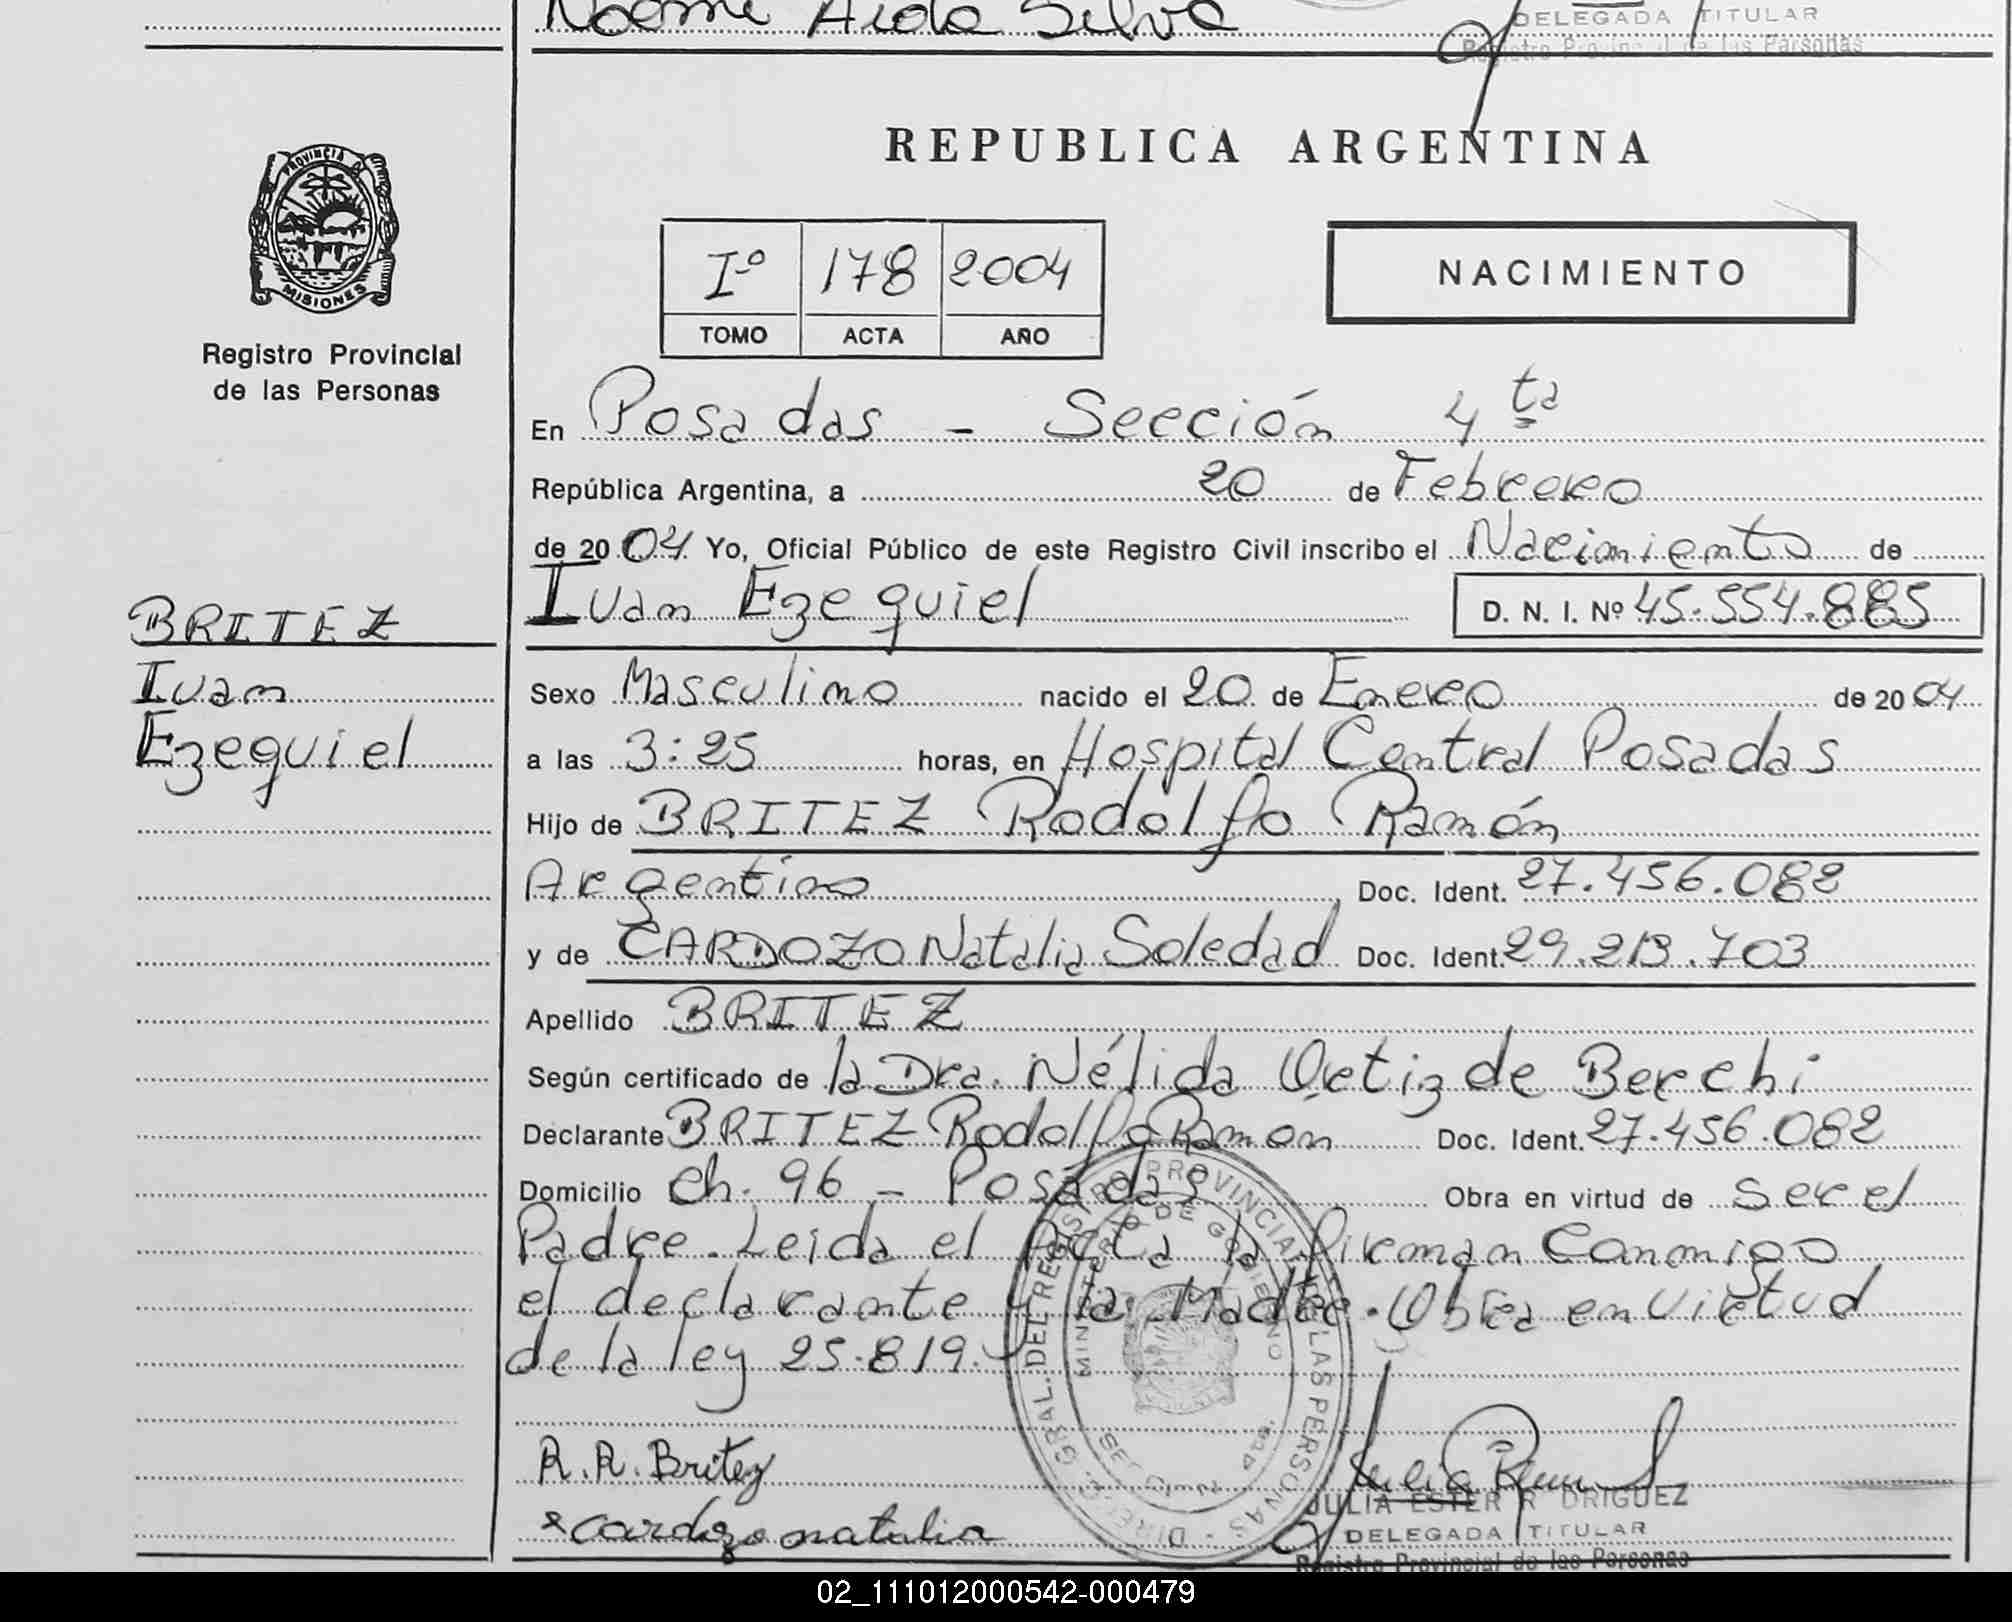 Noemi Aida Silva
DELEGADA TITULAR
Registro Provincial de las Personas
REPUBLICA ARGENTINA
PROVINCIA DE
MISIONES
Registro Provincial
de las Personas
Iº 178 2004
TOMO ACTA AÑO
NACIMIENTO
En Posadas - Sección 4ta
República Argentina, a 20 de Febrero
de 2004 Yo, Oficial Público de este Registro Civil inscribo el Nacimiento de
Ivan Ezequiel D. N. I. Nº 45.554.885
BRITEZ
Ivan
Ezequiel
Sexo Masculino nacido el 20 de Enero de 2004
a las 3:25 horas, en Hospital Central Posadas
Hijo de BRITEZ Rodolfo Ramón
Argentino Doc. Ident. 27.456.082
y de CARDOZO Natalia Soledad Doc. Ident. 29.213.703
Apellido BRITEZ
Según certificado de la Dra. Nélida Ortiz de Berchi
Declarante BRITEZ Rodolfo Ramón Doc. Ident. 27.456.082
Domicilio Ch. 96 - Posadas Obra en virtud de ser el
Padre. Leida el Acta la firman Conmigo
el declarante y la Madre. Obra en virtud
de la ley 25.819.
R.R. Britez
Cardozo natalia
DIREC. GRAL. DEL REGISTRO PROVINCIAL DE LAS PERSONAS
MINISTERIO DE GOBIERNO
MISIONES
JULIA ESTER R DRIGUEZ
DELEGADA TITULAR
Registro Provincial de las Personas
02_111012000542-000479